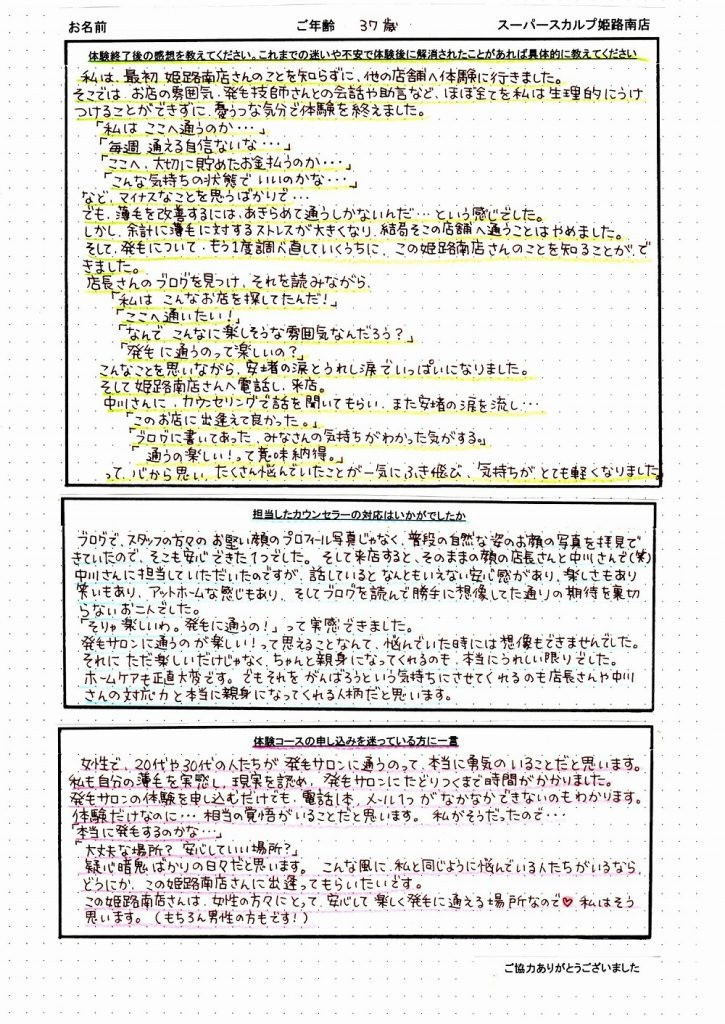 お名前 ご年齢 37歳 スーパースカルプ姫路南店
体験終了後の感想を教えてください。これまでの迷いや不安で体験後に解消されたことがあれば具体的に教えてください
私は、最初 姫路南店さんのことを知らずに、他の店舗へ体験に行きました。
そこでは、お店の雰囲気・発毛技師さんとの会話や助言など、ほぼ全てを私は生理的にうけ
つけることができずに、憂うつな気分で体験を終えました。
「私は ここへ通うのか・・・」
「毎週 通える自信ないな・・・」
「ここへ、大切に貯めたお金払うのか・・・」
「こんな気持ちの状態で いいのかな・・・」
など、マイナスなことを思うばかりで・・・
でも、薄毛を改善するには、あきらめて通うしかないんだ・・・という感じでした。
しかし、余計に薄毛に対するストレスが大きくなり、結局そこの店舗へ通うことはやめました。
そして、発毛について、もう1度調べ直していくうちに、この姫路南店さんのことを知ることがで
きました。
店長さんのブログを見つけ、それを読みながら、
「私は こんなお店を探してたんだ！」
「ここへ通いたい！」
「なんで こんなに楽しそうな雰囲気なんだろう？」
「発毛に通うのって楽しいの？」
こんなことを思いながら、安堵の涙とうれし涙でいっぱいになりました。
そして姫路南店さんへ電話し、来店。
中川さんに、カウンセリングで話を聞いてもらい、また安堵の涙を流し・・・
「このお店に出逢えて良かった。」
「ブログに書いてあった、みなさんの気持ちがわかった気がする。」
「通うの楽しい！って意味納得。」
って、心から思い、たくさん悩んでいたことが一気にふき飛び、気持ちがとても軽くなりました。
担当したカウンセラーの対応はいかがでしたか
ブログで、スタッフの方々のお堅い顔のプロフィール写真じゃなく、普段の自然な姿のお顔の写真を拝見で
きていたので、そこも安心できた1つでした。そして来店すると、そのままの顔の店長さんと中川さんで(笑)
中川さんに担当していただいたのですが、話しているとなんともいえない安心感があり、楽しさもあり
笑いもあり、アットホームな感じもあり、そしてブログを読んで勝手に想像した通りの期待を裏切
らないお二人でした。
「そりゃ楽しいわ。発毛に通うの！」って実感できました。
発毛サロンに通うのが楽しい！って思えることなんて、悩んでいた時には想像もできませんでした。
それに ただ楽しいだけじゃなく、ちゃんと親身になってくれるのも、本当にうれしい限りでした。
ホームケアも正直大変です。でもそれをがんばろうという気持ちにさせてくれるのも店長さんや中川
さんの対応力と本当に親身になってくれる人柄だと思います。
体験コースの申し込みを迷っている方に一言
女性で、20代や30代の人たちが 発毛サロンに通うのって、本当に勇気のいることだと思います。
私も自分の薄毛を実感し、現実を認め、発毛サロンにたどりつくまで時間がかかりました。
発毛サロンの体験を申し込むだけでも、電話1本、メール1つがなかなかできないのもわかります。
体験だけなのに・・・相当の覚悟がいることだと思います。 私がそうだったので・・・
「本当に発毛するのかな・・・」
「大丈夫な場所？ 安心していい場所？」
疑心暗鬼ばかりの日々だと思います。 こんな風に、私と同じように悩んでいる人たちがいるなら、
どうにか、この姫路南店さんに出逢ってもらいたいです。
この姫路南店さんは、女性の方々にとって、安心して楽しく発毛に通える場所なので♥ 私はそう
思います。(もちろん男性の方もです！)
ご協力ありがとうございました